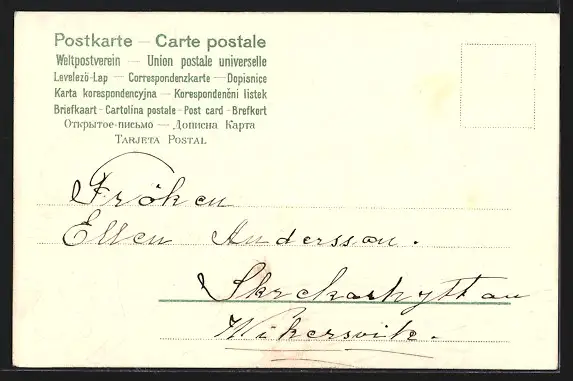 Postkarte — Carte postale
Weltpostverein — Union postale universelle
Levelező-Lap — Correspondenzkarte — Dopisnice
Karta korespondencyjna — Korespondenční listek
Briefkaart - Cartolina postale - Post card - Brefkort
Открытое-письмо — Дописна Карта
Tarjeta Postal
Fröken
Ellen Andersson.
Wikersvik.